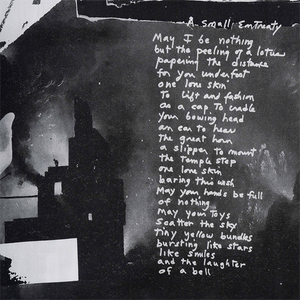 A Small Entreaty
May I be nothing
but the peeling of a lotus
papering the distance
for you underfoot
one lone skin
To lift and fashion
as a cap to cradle
your bowing head
an ear to hear
the great horn
a slipper to mount
the temple step
one lone skin
baring this wish
May your hands be full
of nothing
May your toys
scatter the sky
tiny yellow bundles
bursting like stars
like smiles
and the laughter
of a bell